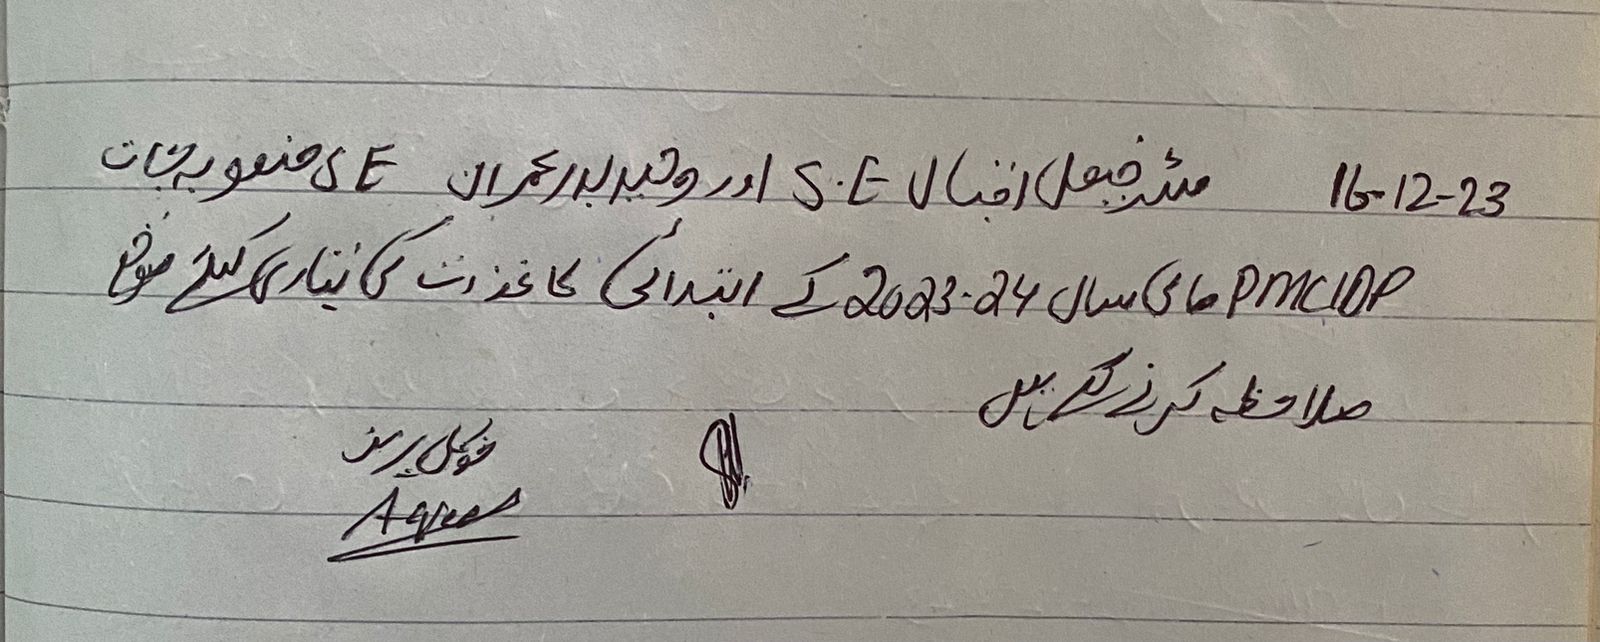 16-12-23 مسٹر فیصل اقبال S.E اور وحید بدر عمران S.E منصوبہ جات
PMCIDP مالی سال 2023-24 کے ابتدائی کاغذت کی تیاری کیلئے موقع
ملاحظہ کرنے گئے ہیں
فوکل پرسن